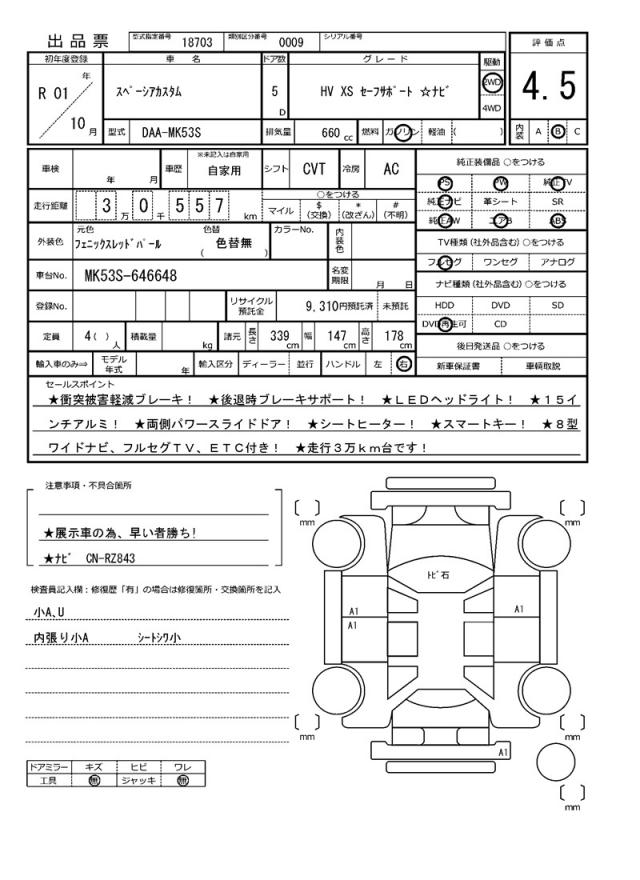 出品票 型式指定番号 18703 類別区分番号 0009 シリアル番号
評価点
4.5
内装 A B C
初年度登録 車名 ドア数 グレード 駆動
R 01 年 10 月
スペーシアカスタム 5 D HV XS セーフサポート ☆ナビ 2WD 4WD
型式 DAA-MK53S 排気量 660 cc 燃料 ガソリン 軽油 ( )
車検 年 月 車歴 ※未記入は自家用 自家用 シフト CVT 冷房 AC
走行距離 3 万 0 千 5 5 7 km
○をつける
マイル $ (交換) * (改ざん) # (不明)
外装色 元色 フェニックスレッドパール 色替 ( 色替無 ) カラーNo. 内装色
車台No. MK53S-646648 名変期限 月 日
登録No. リサイクル預託金 9,310円預託済 未預託
定員 4( ) 人 積載量 kg 諸元 長さ 339 cm 幅 147 cm 高さ 178 cm
輸入車のみ⇒ モデル年式 年 輸入区分 ディーラー 並行 ハンドル 左 右
純正装備品 ○をつける
PS PW 純正TV
純正ナビ 革シート SR
純正AW エアB ABS
TV種類(社外品含む) ○をつける
フルセグ ワンセグ アナログ
ナビ種類(社外品含む) ○をつける
HDD DVD SD
DVD再生可 CD
後日発送品 ○をつける
新車保証書 車輌取説
セールスポイント
★衝突被害軽減ブレーキ! ★後退時ブレーキサポート! ★LEDヘッドライト! ★15イ
ンチアルミ! ★両側パワースライドドア! ★シートヒーター! ★スマートキー! ★8型
ワイドナビ、フルセグTV、ETC付き! ★走行3万km台です!
注意事項・不具合箇所
★展示車の為、早い者勝ち!
★ナビ CN-RZ843
検査員記入欄:修復歴「有」の場合は修復箇所・交換箇所を記入
小A、U
内張り小A シートシワ小
ドアミラー キズ ヒビ ワレ
工具 無 ジャッキ 無
[ ] mm
[ ] mm
トビ石
A1
A1
A1
[ ] mm
[ ] mm
A1
[ ] mm